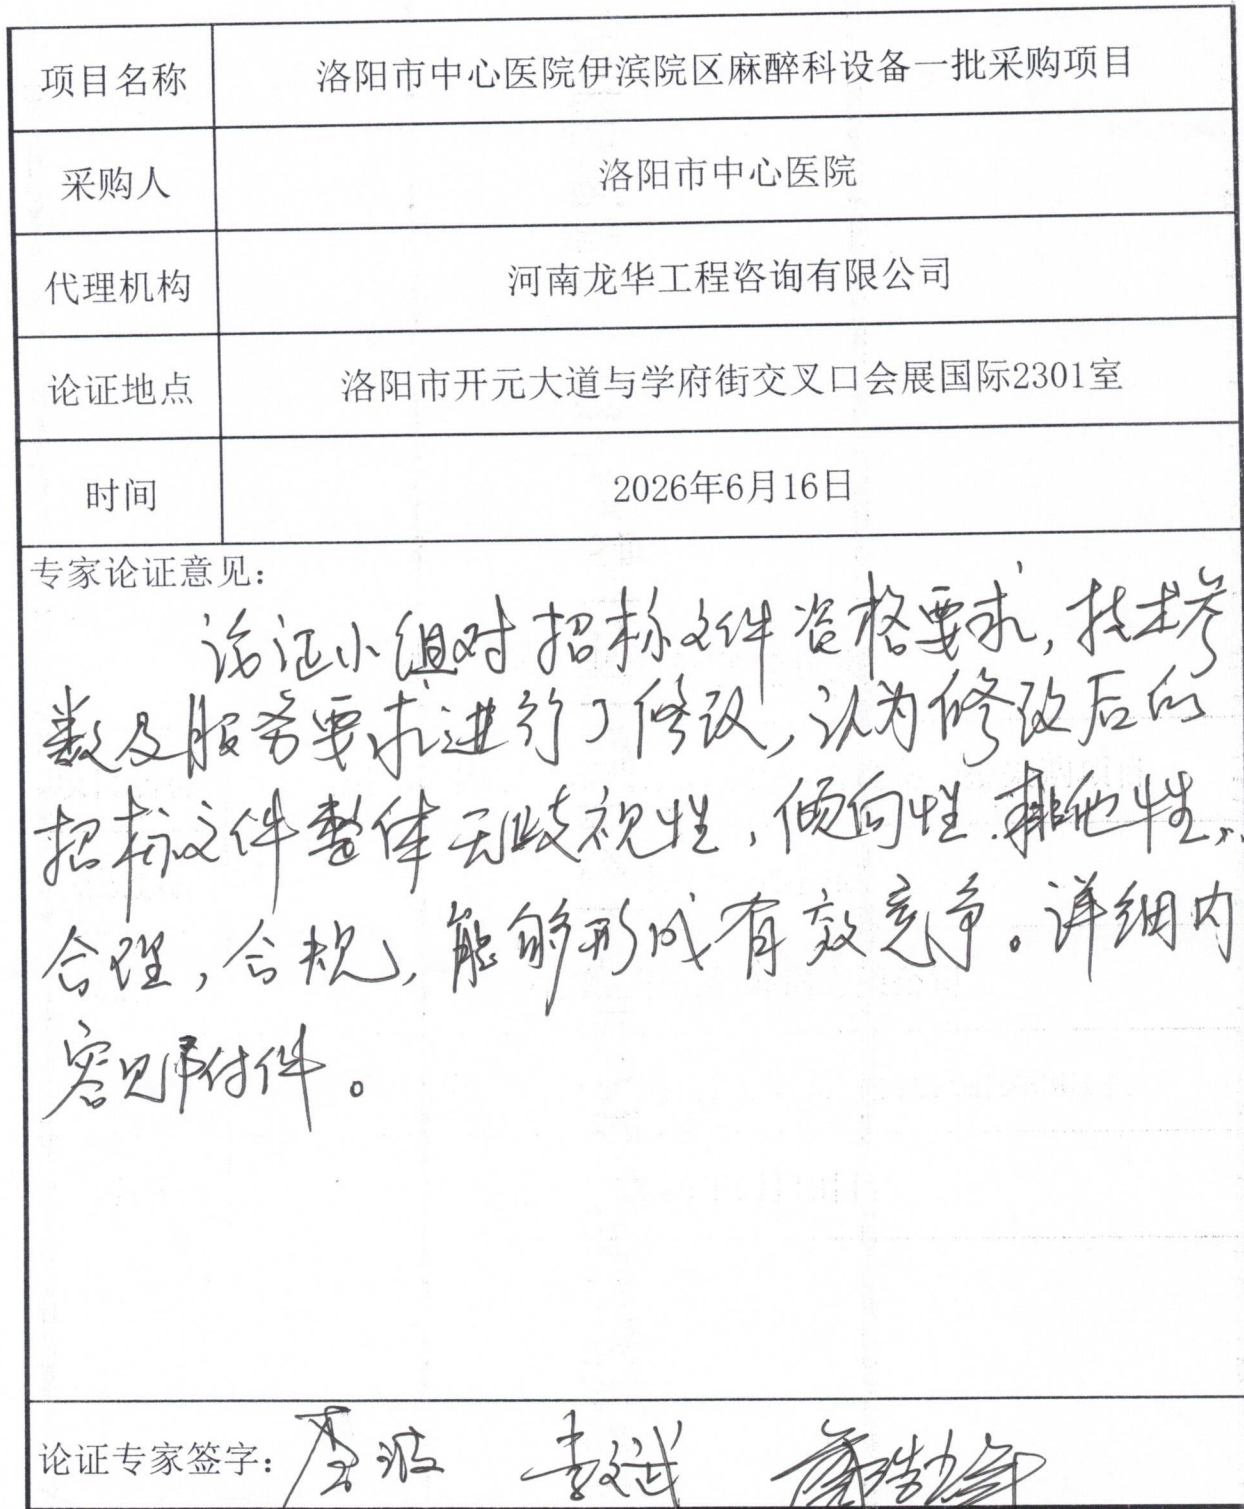 项目名称 洛阳市中心医院伊滨院区麻醉科设备一批采购项目
采购人 洛阳市中心医院
代理机构 河南龙华工程咨询有限公司
论证地点 洛阳市开元大道与学府街交叉口会展国际2301室
时间 2026年6月16日
专家论证意见：
论证小组对招标文件资格要求,技术参
数及服务要求进行了修改,认为修改后的
招标文件整体无歧视性,倾向性.排他性,
合理,合规,能够形成有效竞争。详细内
容见附件。
论证专家签字：